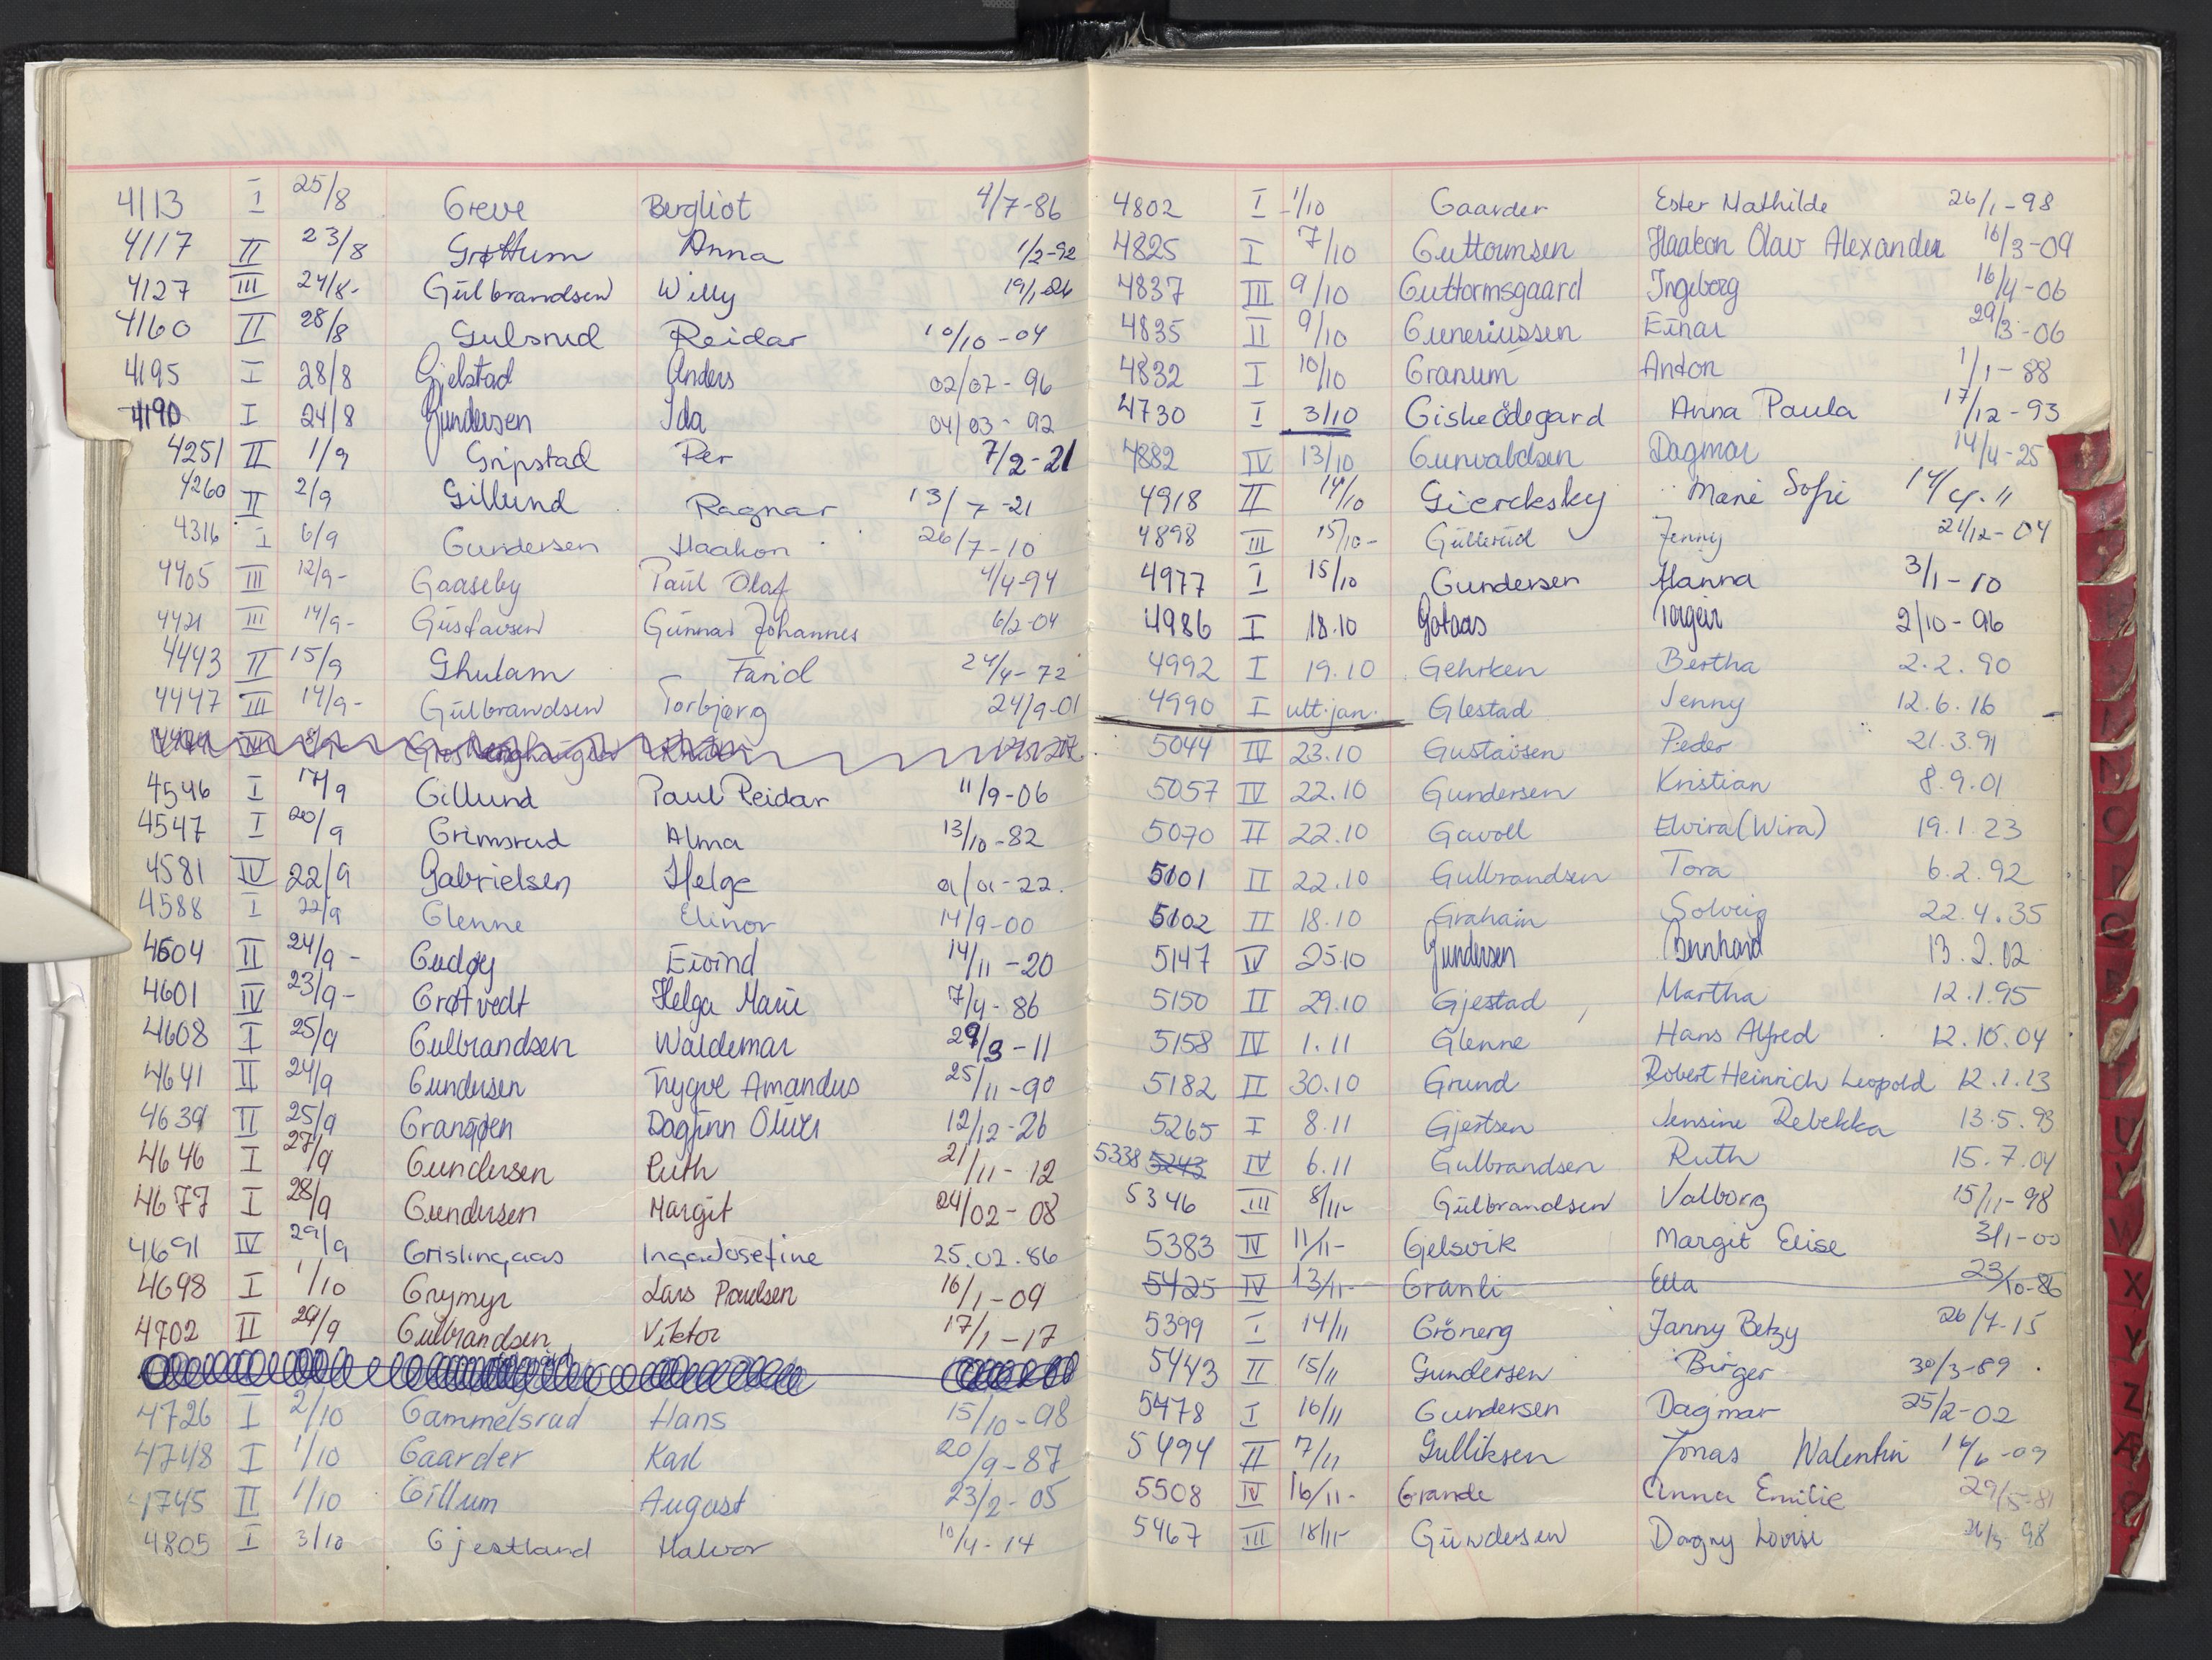 4113 I 25/8 Greve Bergliot 4/7-86
4117 II 23/8 Grøttum Anna 1/2-92
4127 III 24/8- Gulbrandsen Willy 19/1-26
4160 II 28/8 Gulsrud Reidar 10/10-04
4195 I 28/8 Gjelstad Anders 02/07-96
4190 I 24/8 Gundersen Ida 04/03-92
4251 II 1/9 Gripstad Per 7/2-21
4260 II 2/9 Gillund Ragnar 13/7-21
4316 I 6/9 Gundersen Haakon 26/7-10
4405 III 12/9- Gaaseby Paul Olaf 4/4-94
4421 III 14/9- Gustavsen Gunnar Johannes 6/2-04
4443 II 15/9 Ghulam Farid 24/4-72
4447 III 14/9- Gulbrandsen Torbjørg 24/9-01
4546 I 17/9 Gillund Paul Reidar 11/9-06
4547 I 20/9 Grimsrud Alma 13/10-82
4581 IV 22/9 Gabrielsen Helge 01/01-22.
4588 I 22/9 Glenne Elinor 14/9-00
4604 II 24/9- Gudøy Eivind 14/11-20
4601 IV 23/9- Grøtvedt Helga Marie 7/4-86
4608 I 25/9 Gulbrandsen Waldemar 29/3-11
4641 II 24/9 Gundersen Trygve Amandus 25/11-90
4639 II 25/9 Dagfinn Oliver 12/12-26
4646 I 27/9 Gundersen Ruth 21/11-12
4677 I 28/9 Gundersen Margit 24/02-08
4691 IV 29/9 Grislingaas Inga Josefine 25.02.86
4698 I 1/10 Grymyr Lars Poulsen 16/1-09
4702 II 29/9 Gulbrandsen Viktor 17/1-17
4726 I 2/10 Gammelsrud Hans 15/10-98
4748 I 1/10 Gaarder Karl 20/9-87
4745 II 1/10 Gillum August 23/2-05
4805 I 3/10 Gjestland Halvor 10/4-14
4802 I 1/10 Gaarder Ester Mathilde 26/1-98
4825 I 7/10 Guttormsen Haakon Olav Alexander 16/3-09
4837 III 9/10 Guttormsgaard Ingeborg 16/4-06
4835 II 9/10 Guneriussen Einar 29/3-06
4832 I 10/10 Granum Anton 1/1-88
4730 I 3/10 Giskeödegard Anna Paula 17/12-93
4882 IV 13/10 Gunvaldsen Dagmar 14/4-25
4918 II 14/10 Giercksky Marie Sofie 14/4-11
4898 III 15/10- Gullerud Jenny 21/12-04
4977 I 15/10 Gundersen Hanna 3/1-10
4986 I 18.10 Gotaas Torgeir 2/10-96
4992 I 19.10 Gehrken Bertha 2.2.90
4990 I utt. jan. Glestad Jenny 12.6.16
5044 IV 23.10 Gustavsen Peder 21.3.91
5057 IV 22.10 Gundersen Kristian 8.9.01
5070 II 22.10 Gavoll Elvira (Wira) 19.1.23
5101 II 22.10 Gulbrandsen Tora 6.2.92
5102 II 18.10 Graham Solveig 22.4.35
5147 IV 25.10 Gundersen Bernhard 13.2.02
5150 II 29.10 Gjestad, Martha 12.1.95
5158 IV 1.11 Glenne Hans Alfred 12.10.04
5182 II 30.10 Grund Robert Heinrich Leopold 12.1.13
5265 I 8.11 Gjertsen Jensine Rebekka 13.5.93
5338 5243 IV 6.11 Gulbrandsen Ruth 15.7.04
5346 III 8/11- Gulbrandsen Valborg 15/11-98
5383 IV 11/11- Gjelsvik Margit Elise 3/1-00
5425 IV 13/11- Granli Ella 23/10-86
5399 I 14/11 Grönerg Janny Betzy 26/7-15
5443 II 15/11 Gundersen Birger 30/3-89
5478 I 16/11 Gundersen Dagmar 25/2-02
5494 II 7/11 Gulliksen Jonas Walentin 14/6-09
5508 IV 16/11- Grande Anna Emilie 29/5-81
5467 III 18/11- Gundersen Dagny Lovise 26/3 98